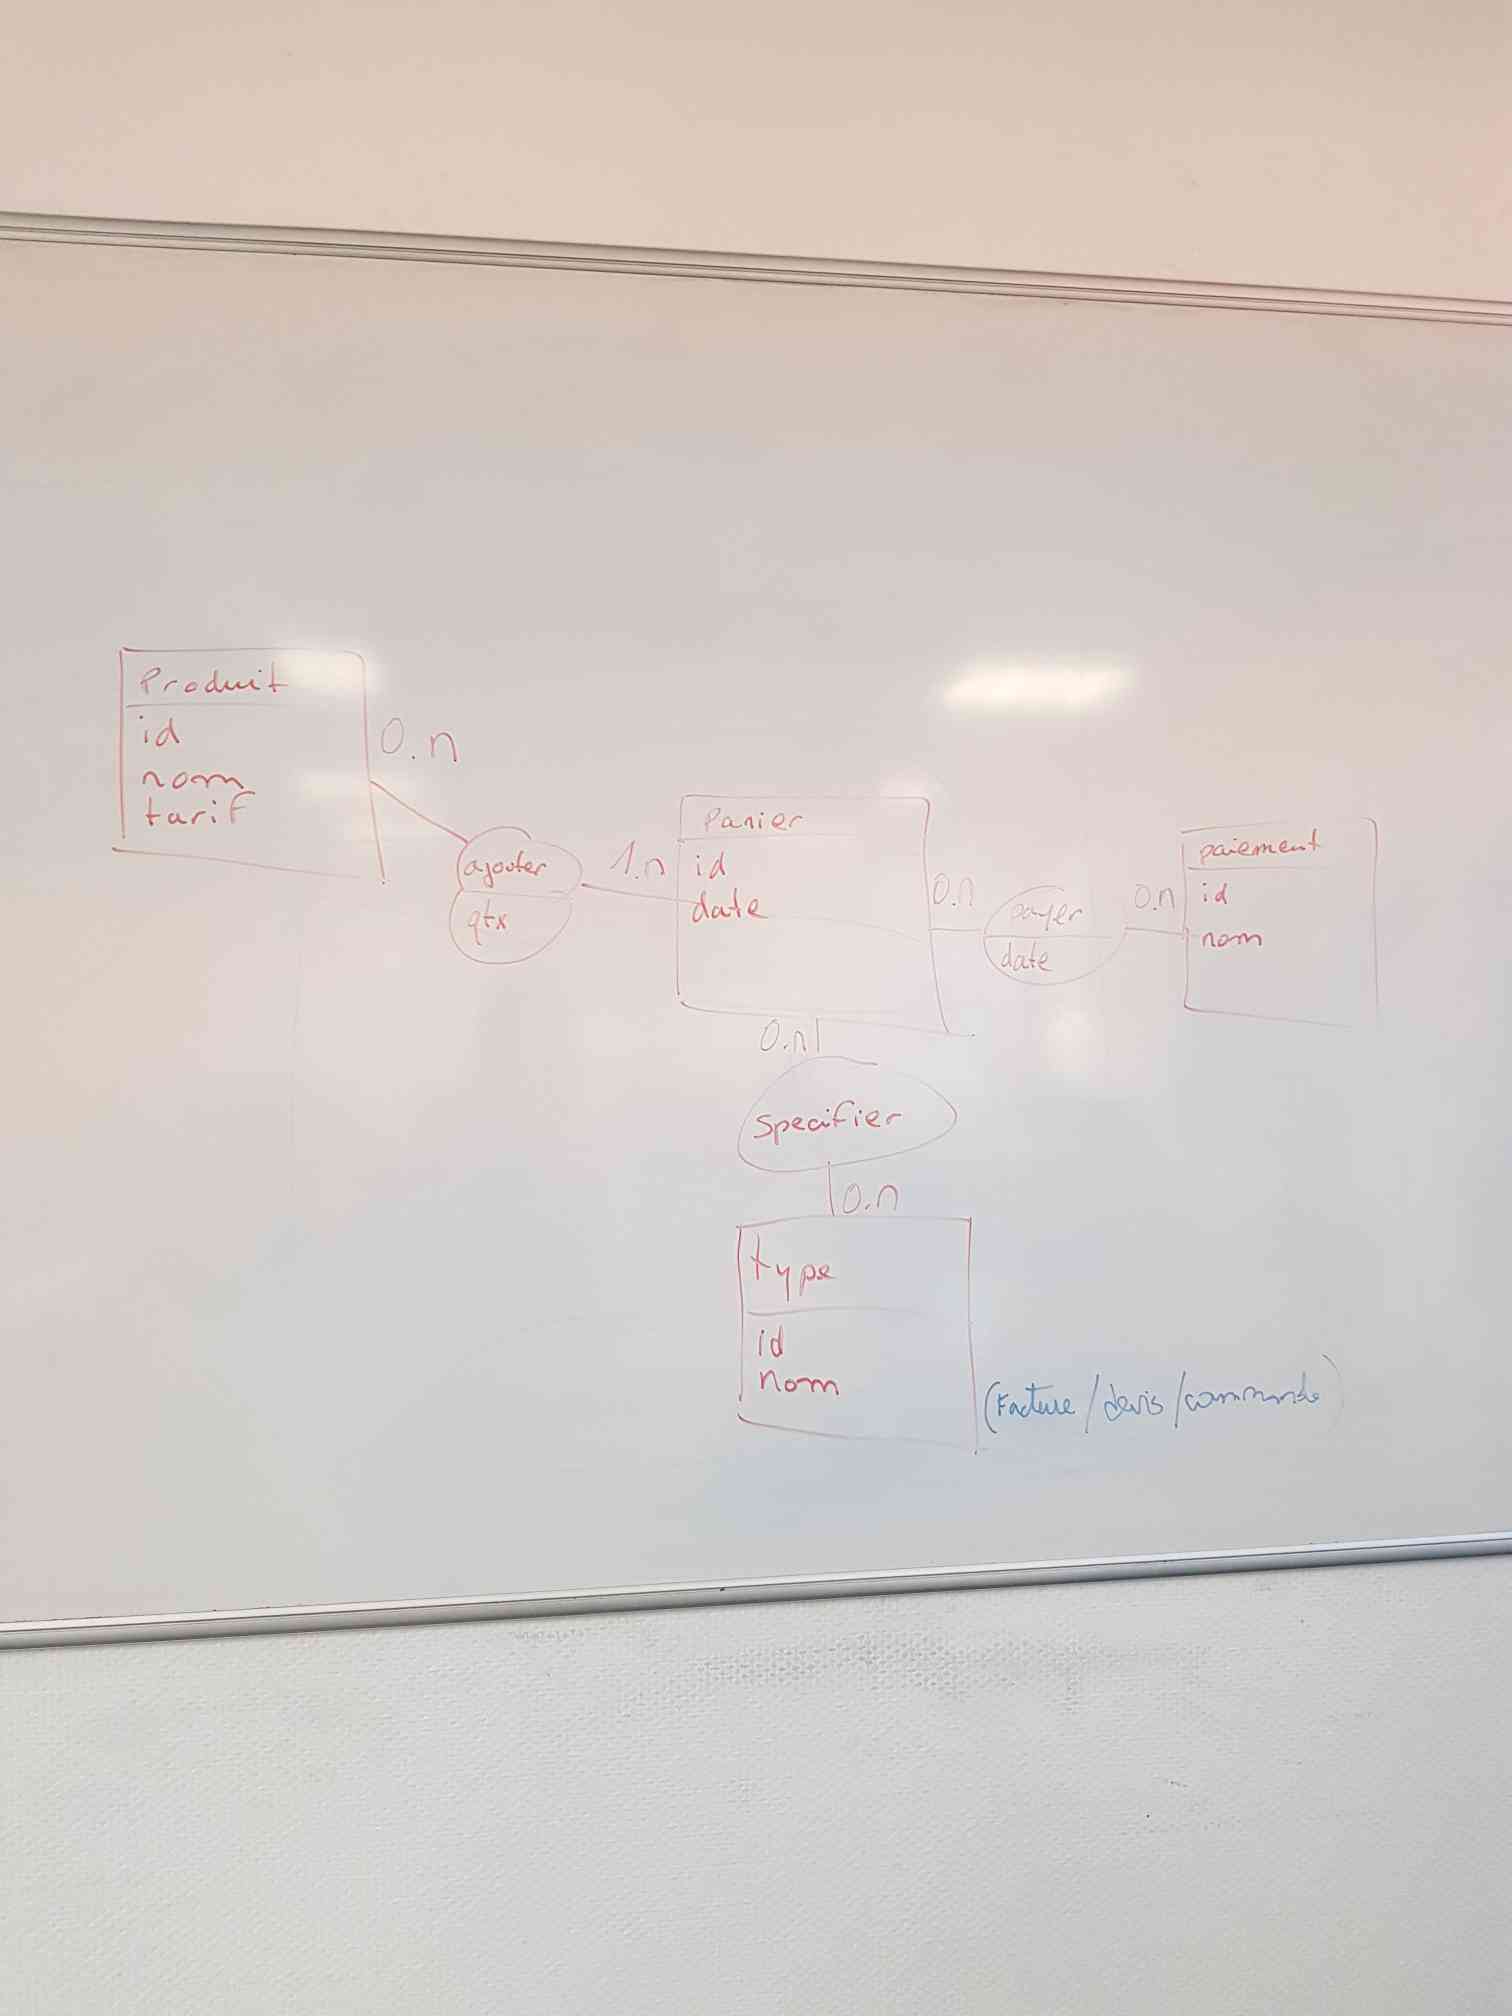 Produit
id
nom
tarif
0.n
ajouter
qtx
1.n
Panier
id
date
0.n
payer
date
0.n
paiement
id
nom
0.n
Specifier
0.n
type
id
nom
(Facture/devis/commande)